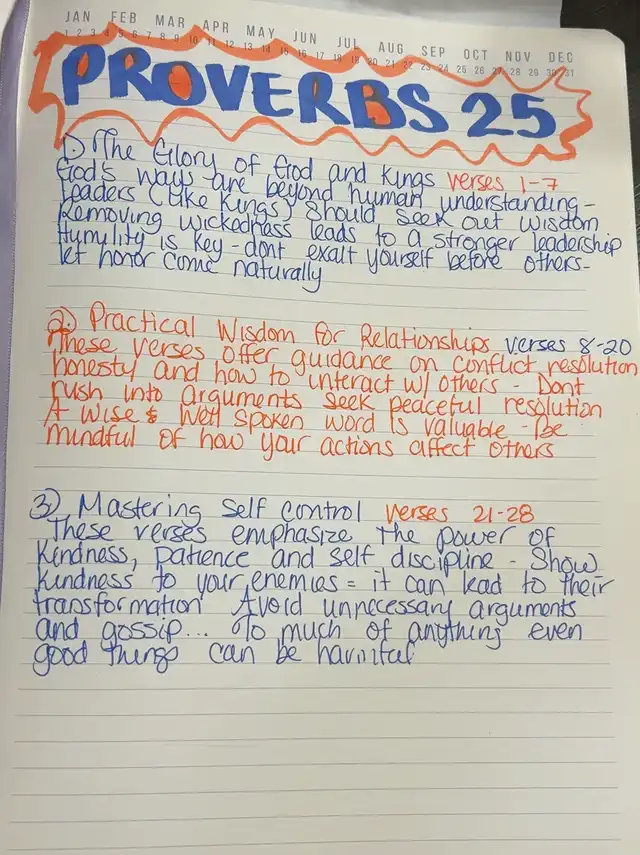 JAN FEB MAR APR MAY JUN JUL AUG SEP OCT NOV DEC
1 2 3 4 5 6 7 8 9 10 11 12 13 14 15 16 17 18 19 20 21 22 23 24 25 26 27 28 29 30 31
PROVERBS 25
1) The Glory of God and Kings verses 1-7
God's ways are beyond human understanding -
Leaders (Like Kings) Should Seek out wisdom
Removing wickedness leads to a stronger leadership
Humility is key - dont exalt yourself before others -
let honor come naturally
2) Practical Wisdom for Relationships verses 8-20
These verses offer guidance on conflict resolution
honesty and how to interact w/ others - Dont
rush into arguments seek peaceful resolution
A wise & well spoken word is valuable - Be
mindful of how your actions affect others
3) Mastering Self Control verses 21-28
These verses emphasize the power of
Kindness, patience and self discipline - Show
kindness to your enemies = it can lead to their
transformation Avoid unnecessary arguments
and gossip... To much of anything even
good things can be harmful